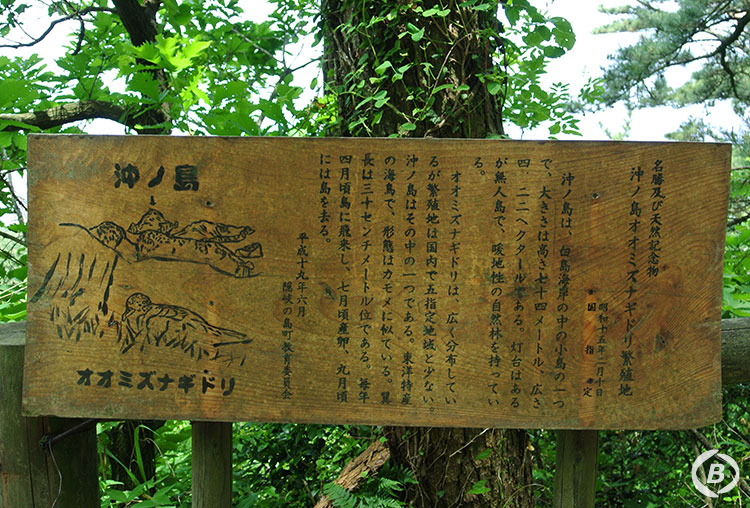 名勝及び天然記念物
沖ノ島オオミズナギドリ繁殖地
昭和十五年二月十日
国指定
沖ノ島は、白島海岸の中の小島の一つ
で、大きさは高さ七十四メートル、広さ
四、二二ヘクタールである。灯台はある
が無人島で、暖地性の自然林を持ってい
る。
オオミズナギドリは、広く分布してい
るが繁殖地は国内で五指定地域と少ない。
沖ノ島はその中の一つである。東洋特産
の海鳥で、形態はカモメに似ている。翼
長は三十センチメートル位である。毎年
四月頃島に飛来し、七月頃産卵、九月頃
には島を去る。
平成十九年六月
隠岐の島町教育委員会
沖ノ島
オオミズナギドリ
B